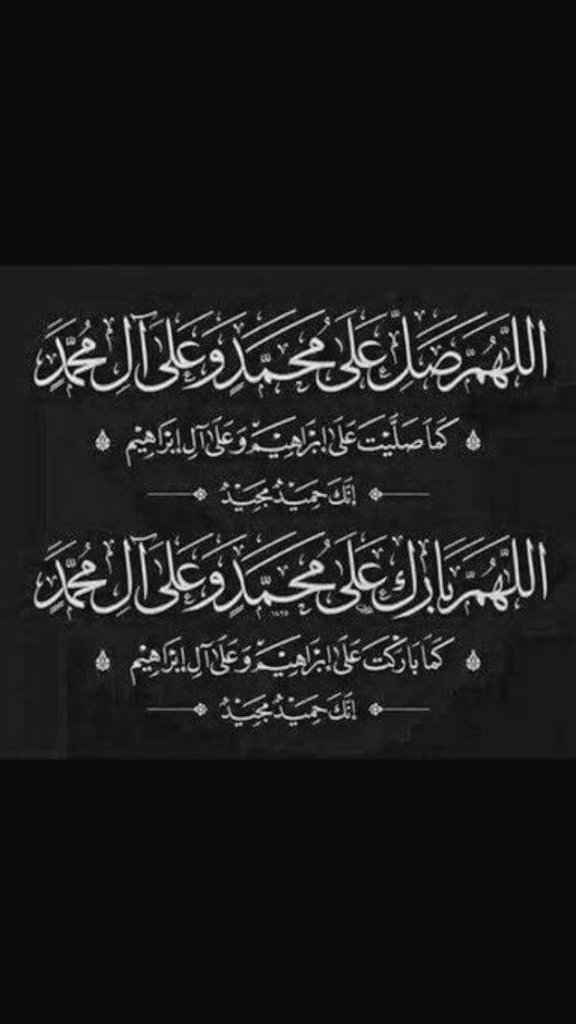 اللَّهُمَّ صَلِّ عَلَى مُحَمَّدٍ وَعَلَى آلِ مُحَمَّدٍ
كَمَا صَلَّيْتَ عَلَى إِبْرَاهِيْمَ وَعَلَى آلِ إِبْرَاهِيْم
إِنَّكَ حَمِيْدٌ مَجِيْدٌ
اللَّهُمَّ بَارِكْ عَلَى مُحَمَّدٍ وَعَلَى آلِ مُحَمَّدٍ
كَمَا بَارَكْتَ عَلَى إِبْرَاهِيْمَ وَعَلَى آلِ إِبْرَاهِيْم
إِنَّكَ حَمِيْدٌ مَجِيْدٌ